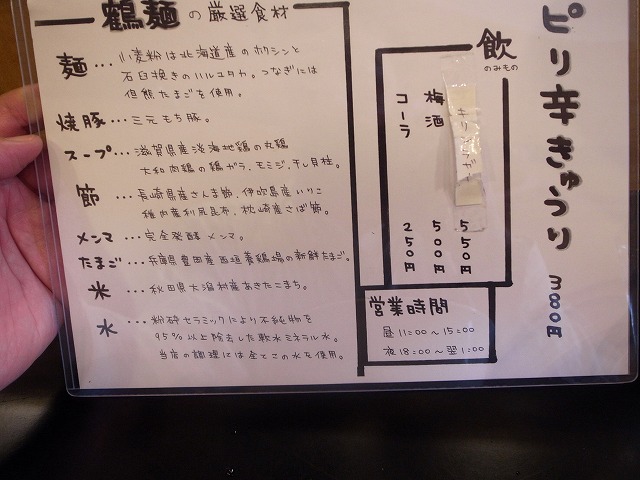 鶴麺の厳選食材
麺・・・小麦粉は北海道産のホクシンと
石臼挽きのハルユタカ。つなぎには
但熊たまごを使用。
焼豚・・・三元もち豚。
スープ・・・滋賀県産淡海地鶏の丸鶏
大和肉鶏の鶏ガラ、モミジ、干し貝柱。
節・・・長崎県産さんま節、伊吹島産いりこ
稚内産利尻昆布、枕崎産さば節。
メンマ・・・完全発酵メンマ。
たまご・・・兵庫県豊岡産西垣養鶏場の新鮮たまご。
米・・・秋田県大潟村産あきたこまち。
水・・・粉砕セラミックにより不純物を
95%以上除去した軟水ミネラル水。
当店の調理には全てこの水を使用。
飲
のみもの
550円
梅酒 500円
コーラ 250円
営業時間
昼11:00〜15:00
夜18:00〜翌1:00
ピリ辛きゅうり 300円